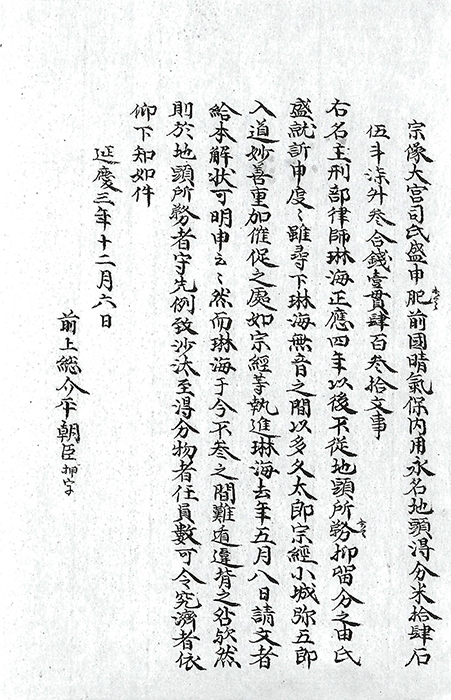 宗像大宮司氏盛申肥前國晴氣保内用永名地頭得分米拾肆石
伍斗柒升叄合錢壹貫肆百叄拾文事
右名主刑部律師琳海正應四年以後不從地頭所務抑留分之由氏
盛就訴申度〻雖尋下琳海無音之間以多久太郎宗經小城弥五郎
入道妙善重加催促之處如宗經等執進琳海去年五月八日請文者
給本解状可明申云〻然而琳海于今不叄之間難遁違背之咎欤然
則於地頭所務者守先例致沙汰至得分物者任員數可令究濟者依
仰下知如件
延慶三年十二月六日
前上総介平朝臣押字